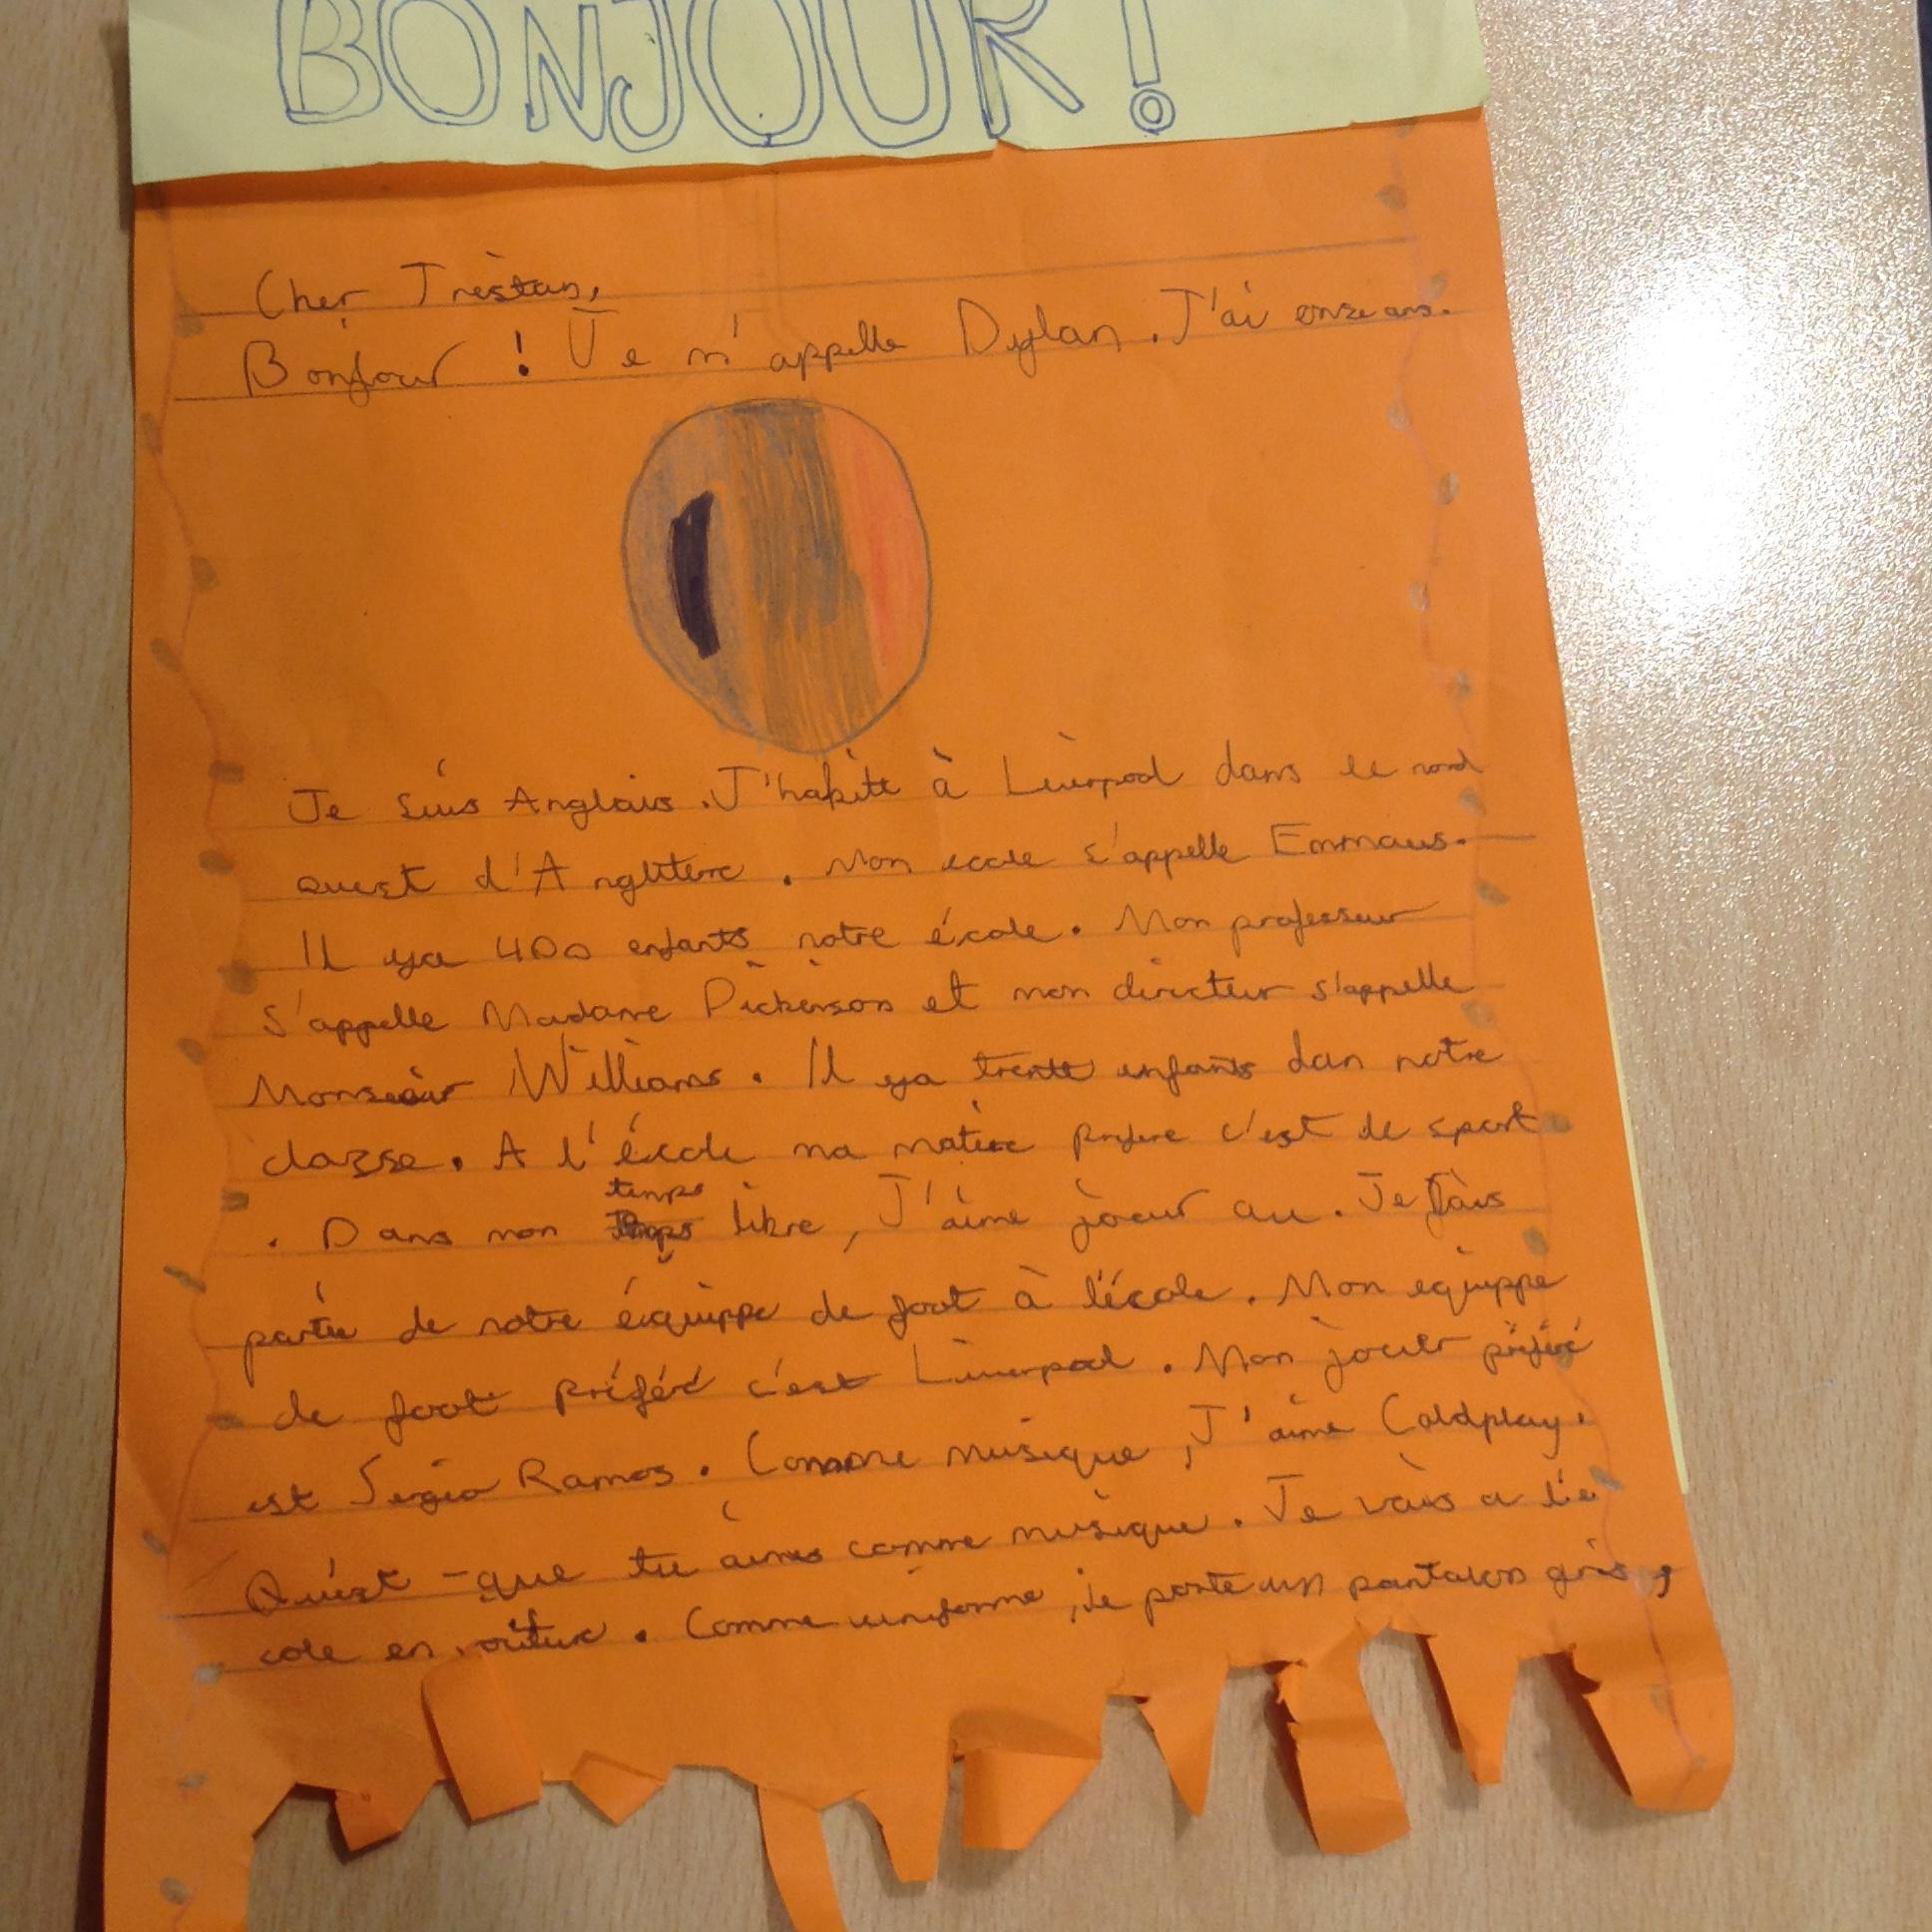 BONJOUR!
Cher Trèstan,
Bonjour ! Je m'appelle Dylan. J'ai onze ans.
Je suis Anglais. J'habite à Liverpool dans le nord
ouest d'Angliterre. Mon ecole s'appelle Emmaus.
Il ya 400 enfants notre école. Mon professeur
s'appelle Madame Dickinson et mon directeur s'appelle
Monsieur Williams. Il ya trente enfants dan notre
classe. A l'école ma matière prefere c'est le sport
. Dans mon temps libre, J'aime joeur au. Je fais
partie de notre équippe de foot à l'école. Mon equippe
de foot préféré c'est Liverpool. Mon jouer préféré
est Sergio Ramos. Comme musique, J'aime Coldplay.
Qu'est-que tu aimes comme musique. Je vais a l'é
cole en voiture. Comme uniforme, je porte un pantalon gris,